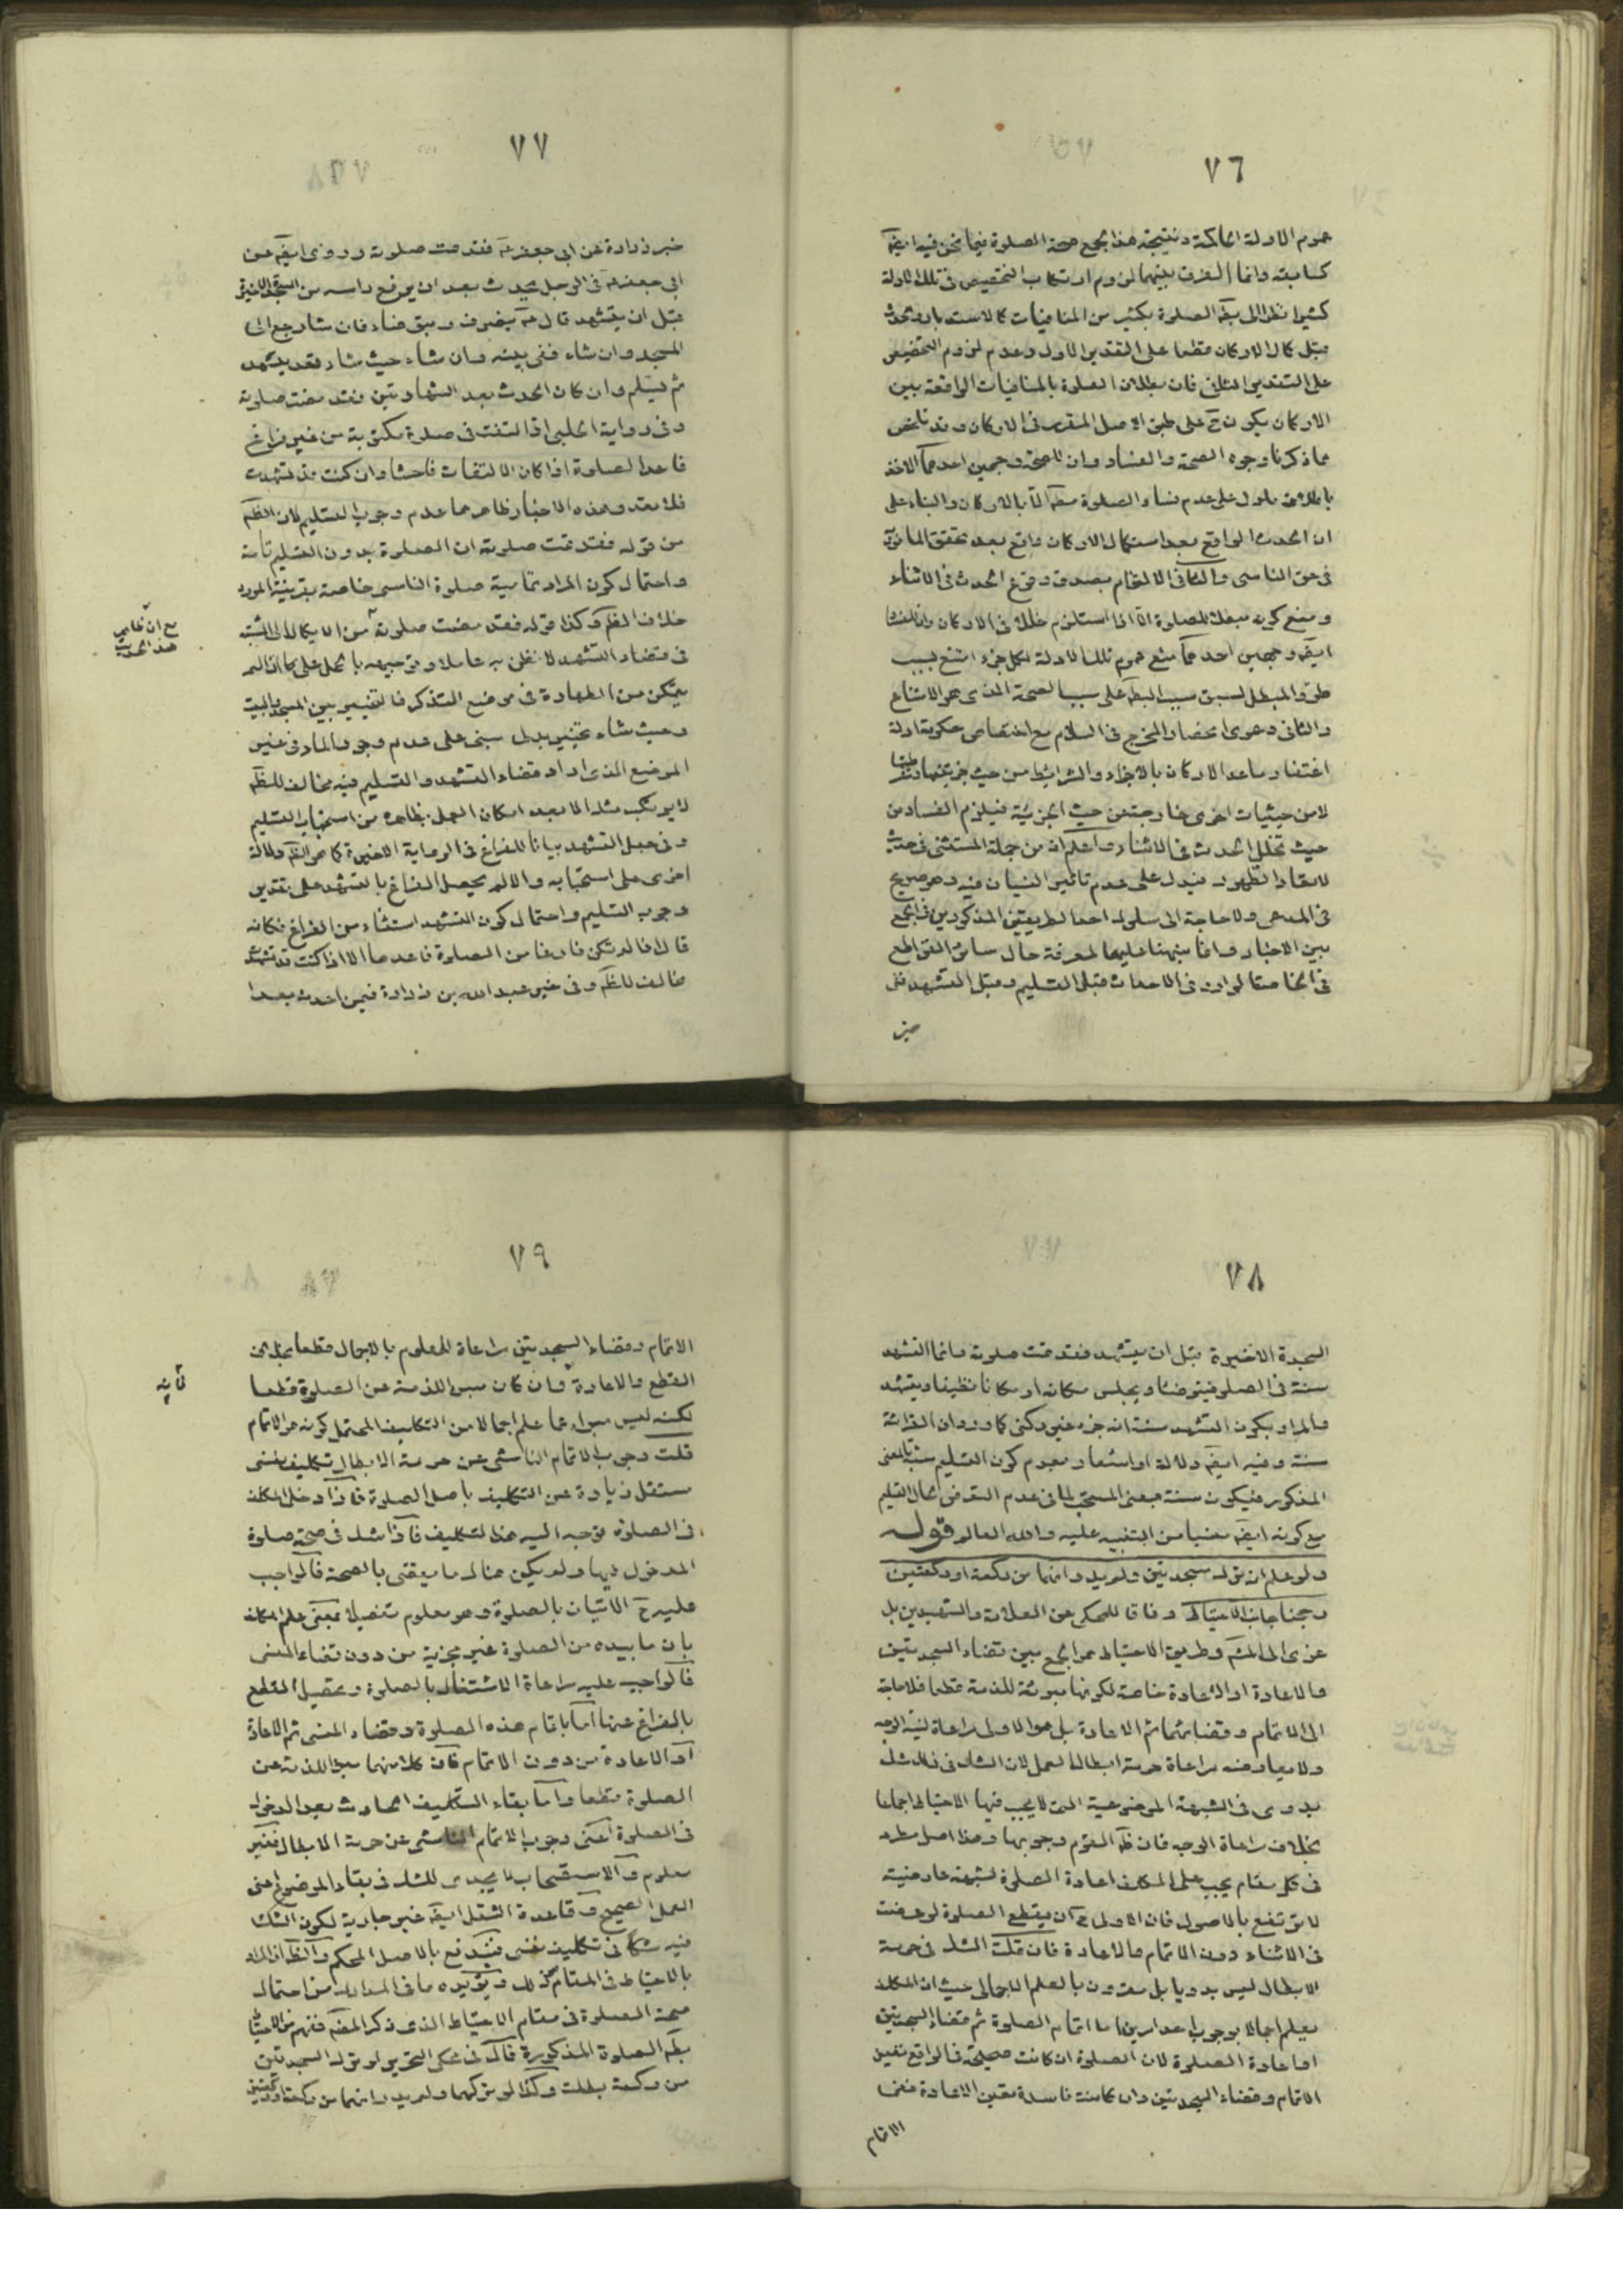 ٧٦
عموم الادلة الحاكمة ونتيجة هذا الجمع صحة الصلوة فيما نحن فيه ايضا
كسابقه وانما الفرق بينهما لزوم ارتكاب التخصيص فى تلك الادلة
كثيرا نظرا الى بقاء الصلوة بكثير من المنافيات كالاستدبار والحدث
قبل كمال الاركان قطعا على التقدير الاول وعدم لزوم التخصيص
على التقدير الثانى فان بطلان الصلوة بالمنافيات الواقعة بين
الاركان يكون ح على طبق الاصل المقرر فى الاركان وقد تلخص
مما ذكرنا وجوه الصحة والفساد وان للصحة وجهين احدهما الاخذ
باطلاق ما دل على عدم فساد الصلوة الا بالاركان والبناء على
ان الحدث الواقع بعد استكمال الاركان واقع بعد تحقق المأمور به
فى حق الناسى والثانى الالتزام بصدق وقوع الحدث فى الاثناء
ومنع كونه مبطلا للصلوة الا اذا استلزم خللا فى الاركان وان للفساد
ايضا وجهين احدهما منع عموم تلك الادلة لكل جزء امتنع بسبب
طرو المبطل لسبق سبب البطلان على سبب الصحة الذى هو الامتناع
والثانى دعوى انحصار المخرج فى السلام مع اختصاص حكومة ادلة
اغتفار ما عدا الاركان بالاجزاء والشرائط من حيث جزئيتها وشرطيتها
لا من حيثيات اخرى خارجة عن حيث الجزئية فيلزم الفساد من
حيث تخلل الحدث فى الاثناء واعلم ان من جملة المستثنى فى حديث
لا تعاد الطهور فيدل على عدم تاثير النسيان فيه وهو صريح
فى المدعى ولا حاجة الى سلوك احد الطريقين المذكورين فى الجمع
بين الاخبار وانما نبهنا عليهما لمعرفة حال سائر القواطع
فى الخاصة الوارد فى الاحداث قبل التسليم وقبل التشهد ففى
خبر
٧٧
خبر زرارة عن ابى جعفر ع فقد تمت صلوته وروى ايضا عن
ابى جعفر ع فى الرجل يحدث بعد ان يرفع راسه من السجدة الاخيرة
قبل ان يتشهد قال ع ينصرف ويتوضاء فان شاء رجع الى
المسجد وان شاء ففى بيته وان شاء حيث شاء قعد يتشهد
ثم يسلم وان كان الحدث بعد الشهادتين فقد مضت صلوته
وفى رواية الحلبى اذا التفت فى صلوة مكتوبة من غير فراغ
فاعد الصلوة اذا كان الالتفات فاحشا وان كنت قد تشهدت
فلا تعد وهذه الاخبار ظاهرها عدم وجوب التسليم لان الظاهر
من قوله فقد تمت صلوته ان الصلوة بدون التسليم تامة
واحتمال كون المراد تمامية صلوة الناسى خاصة بقرينة المورد
خلاف الظاهر وكذا قوله فقد مضت صلوته
فى قضاء التشهد لا نظن به عاملا وتوجيهه بالحمل على ما اذا لم
يتمكن من الطهارة فى موضع التذكر فالتخيير بين المسجد والبيت
وحيث شاء تخيير بدلى مبنى على عدم وجود الماء فى غير
الموضع الذى اراد قضاء التشهد والتسليم فيه مخالف للظاهر
لا يرتكب مثله الا بعد امكان العمل بظاهره من استحباب التسليم
وفى جعل التشهد بيانا للفراغ فى الرواية الاخيرة كما هو الظاهر دلالة
اخرى على استحبابه والا لم يحصل الفراغ بالتشهد على تقدير
وجوب التسليم واحتمال كون التشهد استثناء من الفراغ فكانه
قال اذا لم تكن فارغا من الصلوة فاعدها الا اذا كنت قد تشهدت
مخالف للظاهر وفى خبر عبد الله بن زرارة فيمن احدث بعد
مع ان ظاهر
هذا الحديث
٧٨
السجدة الاخيرة قبل ان يتشهد فقد تمت صلوته وانما التشهد
سنة فى الصلوة فيتوضاء ويجلس مكانه او مكانا نظيفا ويتشهد
والمراد بكون التشهد سنة انه جزء غير ركنى كما ورد ان القرائة
سنة وفيه ايضا دلالة او اشعار بعدم كون التسليم سنة بالمعنى
المذكور فيكون سنة بمعنى المستحب لما فى عدم التعرض لحال التسليم
مع كونه ايضا منسيا من التنبيه عليه والله العالم قوله
ولو علم ان ترك سجدتين ولم يدر انهما من ركعة او ركعتين
رجحنا جانب الاحتياط وفاقا للمحكى عن العلامة والشهيدين بل
عزى الى المشهور وطريق الاحتياط هو الجمع بين قضاء السجدتين
والاعادة او الاعادة خاصة لكونها مبرئة للذمة قطعا فلا حاجة
الى الاتمام وقضائهما ثم الاعادة بل هو الاولى مراعاة لنية الوجه
ولا يعارضه مراعاة حرمة ابطال العمل لان الشك فى ذلك شك
بدوى فى الشبهة الموضوعية التى لا يجب فيها الاحتياط اجماعا
بخلاف مراعاة الوجه فان ظاهر القوم وجوبها وهذا اصل مطرد
فى كل مقام يجب على المكلف اعادة الصلوة لشبهة عارضية
لا ترتفع بالاصول فان الاولى ح ان يقطع الصلوة لو عرضت
فى الاثناء دون الاتمام والاعادة فان قلت الشك فى حرمة
الابطال ليس بدويا بل مقرون بالعلم الاجمالى حيث ان المكلف
يعلم اجمالا بوجوب احد امرين اما اتمام الصلوة ثم قضاء السجدتين
او اعادة الصلوة لان الصلوة ان كانت صحيحة فالواقع تعين
الاتمام وقضاء السجدتين وان كانت فاسدة تعين الاعادة ففى
الاتمام
٧٩
الاتمام وقضاء السجدتين مراعاة للمعلوم بالاجمال قطعا بخلاف
القطع والاعادة وان كان مبرء للذمة عن الصلوة قطعا
لكنه ليس مبرء عما علم اجمالا من التكليف المحتمل كونه هو الاتمام
قلت وجوب الاتمام الناشى عن حرمة الابطال تكليف نفسى
مستقل زيادة عن التكليف باصل الصلوة فاذا دخل المكلف
فى الصلوة توجه اليه هذا التكليف فاذا شك فى صحة صلوة
المدخول فيها ولم يكن هناك ما يقتضى بالصحة فالواجب
عليه ح الاتيان بالصلوة وهو معلوم تفصيلا بمعنى علم المكلف
بان ما بيده من الصلوة غير مجزية من دون قضاء المنسى
فالواجب عليه مراعاة الاشتغال بالصلوة وتحصيل القطع
بالفراغ عنها اما باتمام هذه الصلوة وقضاء المنسى ثم الاعادة
او الاعادة من دون الاتمام فان كلا منهما مبرء للذمة عن
الصلوة قطعا واما بقاء التكليف الحادث بعد الدخول
فى الصلوة اعنى وجوب الاتمام الناشى عن حرمة الابطال فغير
معلوم والاستصحاب لا يجدى للشك فى بقاء الموضوع اعنى
العمل الصحيح وقاعدة الشغل ايضا غير جارية لكون الشك
فيه شكا فى تكليف نفسى فيندفع بالاصل المحكم والظاهر ان المراد
بالاحتياط فى المقام ذلك ويؤيده ما فى المدارك من احتمال
صحة الصلوة فى مقام الاحتياط الذى ذكر المصنف ففهم من الاحتياط
بطلان الصلوة المذكورة قال فى محكى التحرير لو ترك السجدتين
من ركعة بطلت وكذا لو تركهما ولم يدر انهما من ركعة او ركعتين